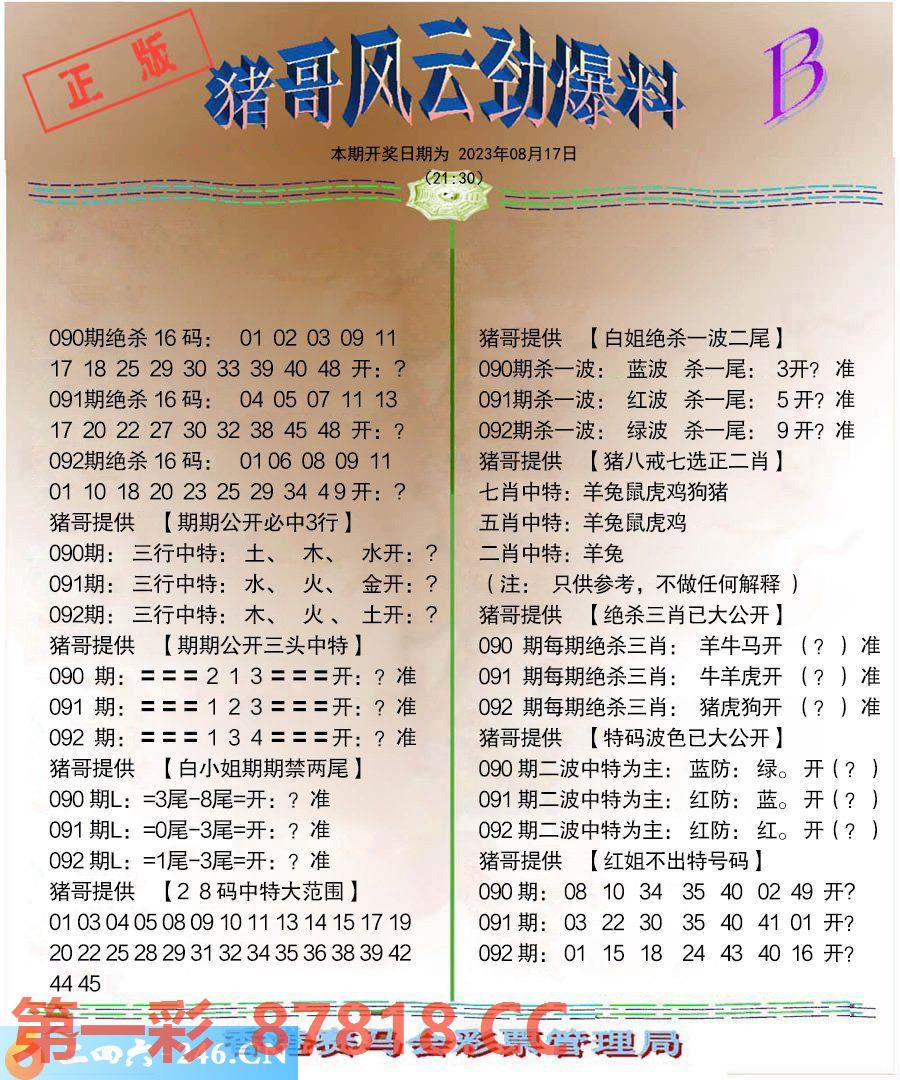 正版
猪哥风云劲爆料
B
本期开奖日期为 2023年08月17日
(21:30)
090期绝杀16码： 01 02 03 09 11
17 18 25 29 30 33 39 40 48 开：?
091期绝杀16码： 04 05 07 11 13
17 20 22 27 30 32 38 45 48 开：?
092期绝杀16码： 01 06 08 09 11
01 10 18 20 23 25 29 34 4 9 开：?
猪哥提供 【期期公开必中3行】
090期：三行中特：土、 木、 水开：?
091期：三行中特：水、 火、 金开：?
092期：三行中特：木、 火、土开：?
猪哥提供 【期期公开三头中特】
090 期：〓〓〓2 1 3〓〓〓开：? 准
091 期：〓〓〓1 2 3〓〓〓开：? 准
092 期：〓〓〓1 3 4〓〓〓开：? 准
猪哥提供 【白小姐期期禁两尾】
090期L：=3尾-8尾=开：? 准
091期L：=0尾-3尾=开：? 准
092期L：=1尾-3尾=开：? 准
猪哥提供 【28码中特大范围】
01 03 04 05 08 09 10 11 13 14 15 17 19
20 22 25 28 29 31 32 34 35 36 38 39 42
44 45
猪哥提供 【白姐绝杀一波二尾】
090期杀一波： 蓝波 杀一尾： 3开? 准
091期杀一波： 红波 杀一尾： 5开? 准
092期杀一波： 绿波 杀一尾： 9开? 准
猪哥提供 【猪八戒七选正二肖】
七肖中特：羊兔鼠虎鸡狗猪
五肖中特：羊兔鼠虎鸡
二肖中特：羊兔
（注： 只供参考，不做任何解释）
猪哥提供 【绝杀三肖已大公开】
090 期每期绝杀三肖： 羊牛马开 （? ）准
091 期每期绝杀三肖： 牛羊虎开 （? ）准
092 期每期绝杀三肖： 猪虎狗开 （? ）准
猪哥提供 【特码波色已大公开】
090期二波中特为主：蓝防：绿。开（? ）
091期二波中特为主：红防：蓝。开（? ）
092期二波中特为主：红防：红。开（? ）
猪哥提供 【红姐不出特号码】
090期： 08 10 34 35 40 02 49 开?
091期： 03 22 30 35 40 41 01 开?
092期： 01 15 18 24 43 40 16 开?
第一彩 87818.CC
二四六 246.CN
香港赛马会彩票管理局